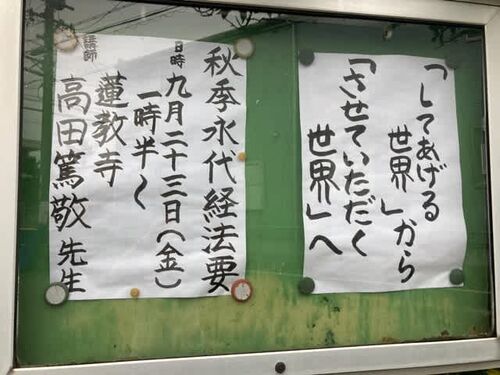 「してあげる
世界」から
「させていただく
世界」へ
秋季永代経法要
日時 九月二十三日(金)
一時半〜
講師 蓮教寺
高田篤敬先生